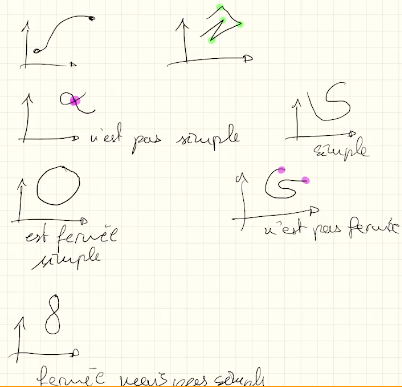 n'est pas simple
simple
est fermée
simple
n'est pas fermée
fermée mais pas simple